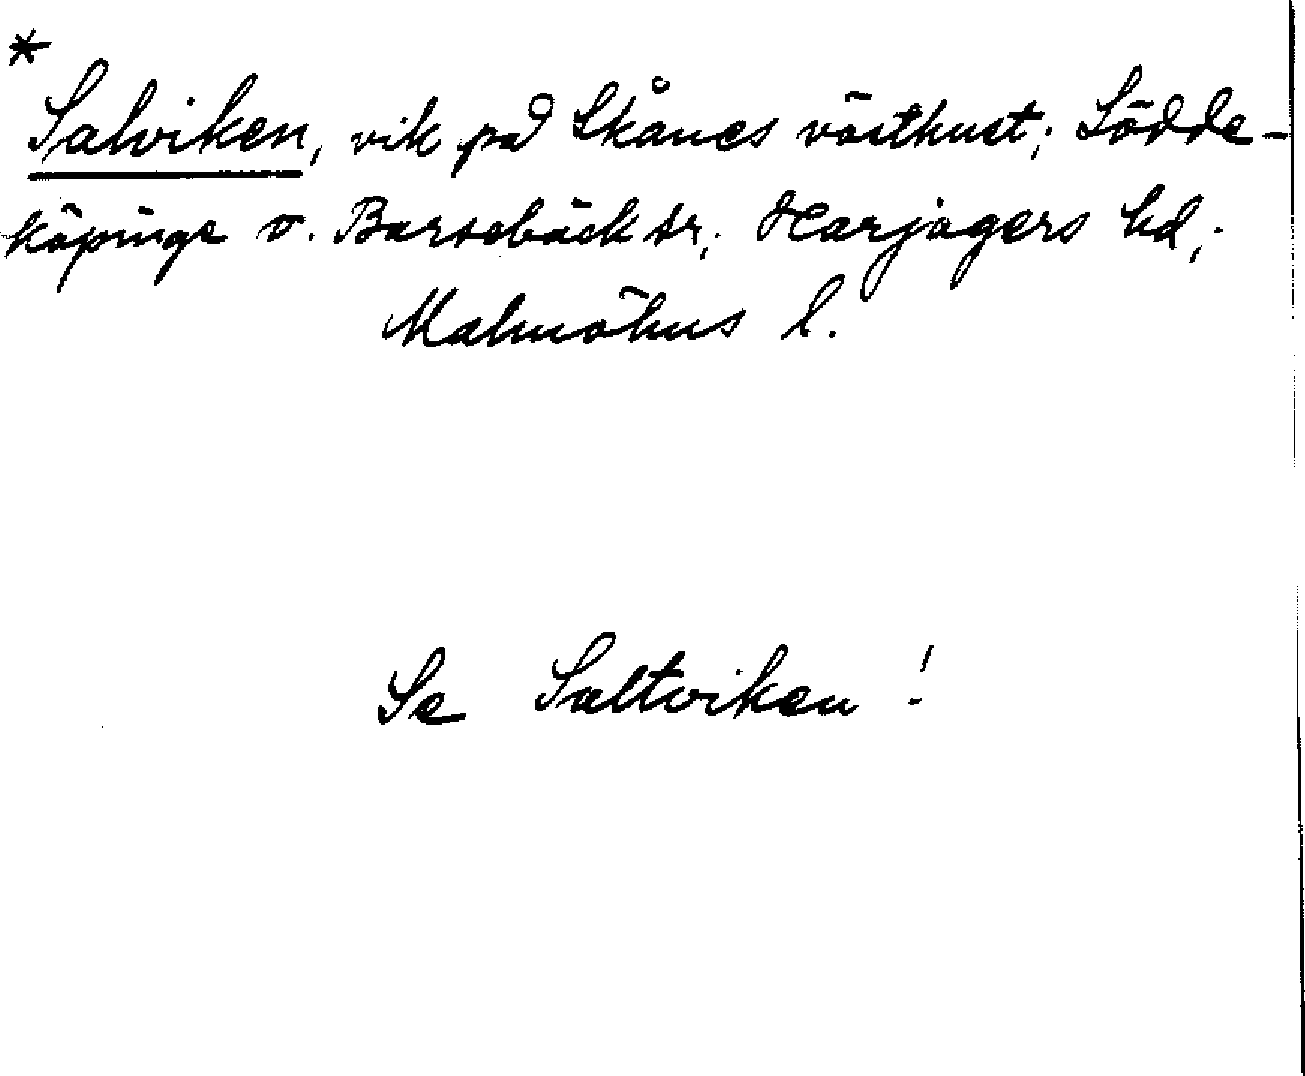 *
Salviken, vik på Skånes västkust; Lödde-
köpinge o. Barsebäck sr; Harjagers hd;
Malmöhus l.
Se Saltviken!